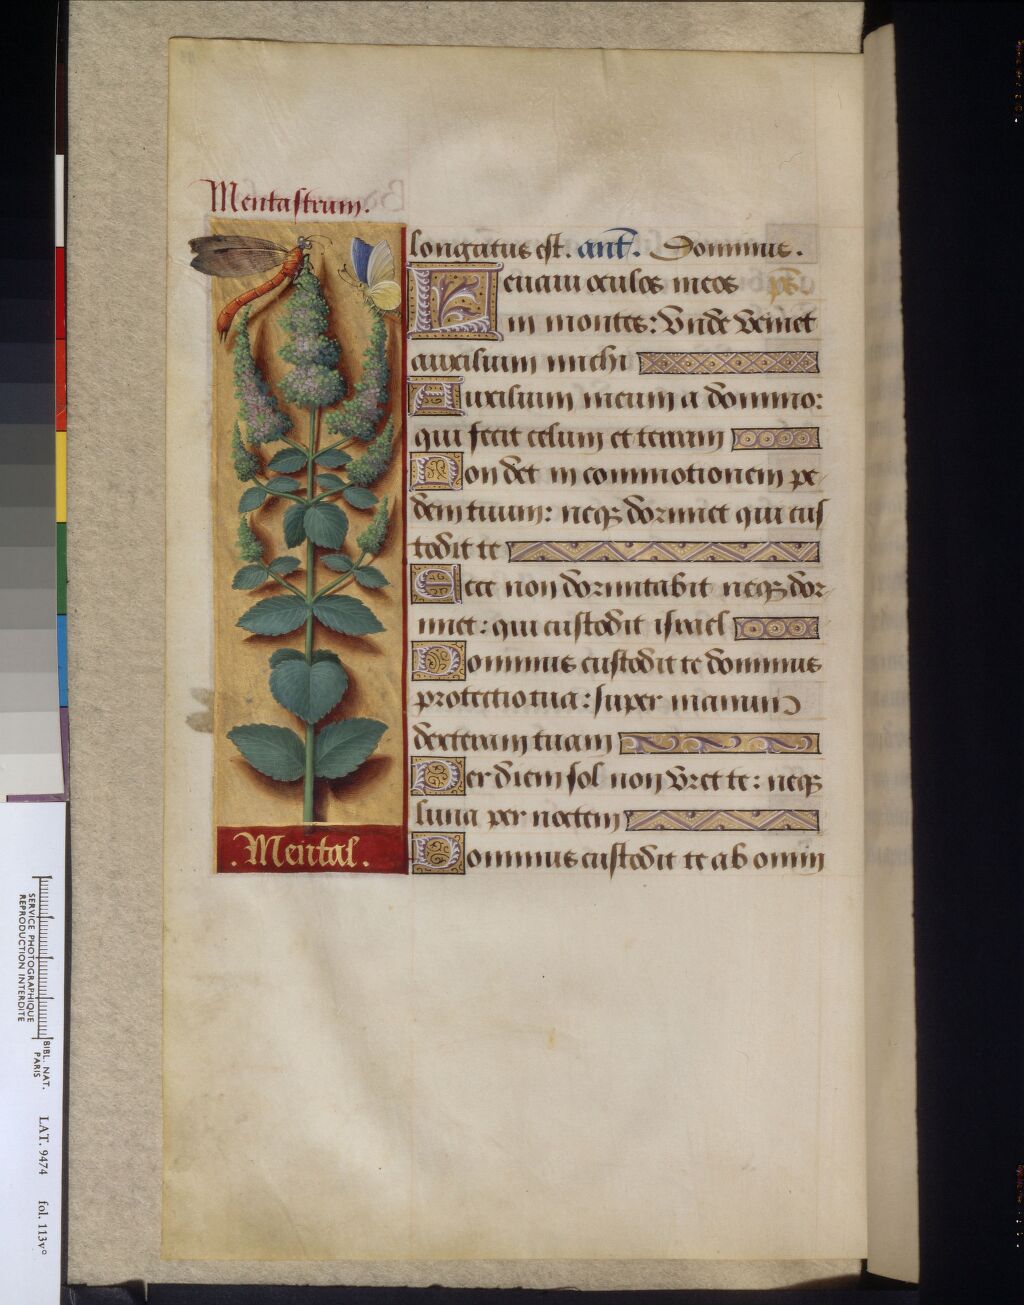 Mentastrum.
longatus est. ant. Dominus.
Leuaui oculos meos ps.
in montes: Vnde Veniet
auxilium michi
Auxilium meum a domino:
qui fecit celum et terram
Non det in commotionem pe-
dem tuum: neqʒ dormiet qui cus
todit te
Ecce non dormitabit neqʒ dor-
miet: qui custodit israel
Dominus custodit te dominus
protectio tua: super manum
dexteram tuam
Per diem sol non Vret te: neqʒ
luna per noctem
Dominus custodit te ab omni
.Mental.
SERVICE PHOTOGRAPHIQUE
REPRODUCTION INTERDITE
BIBL. NAT.
PARIS
LAT. 9474 fol. 113v°